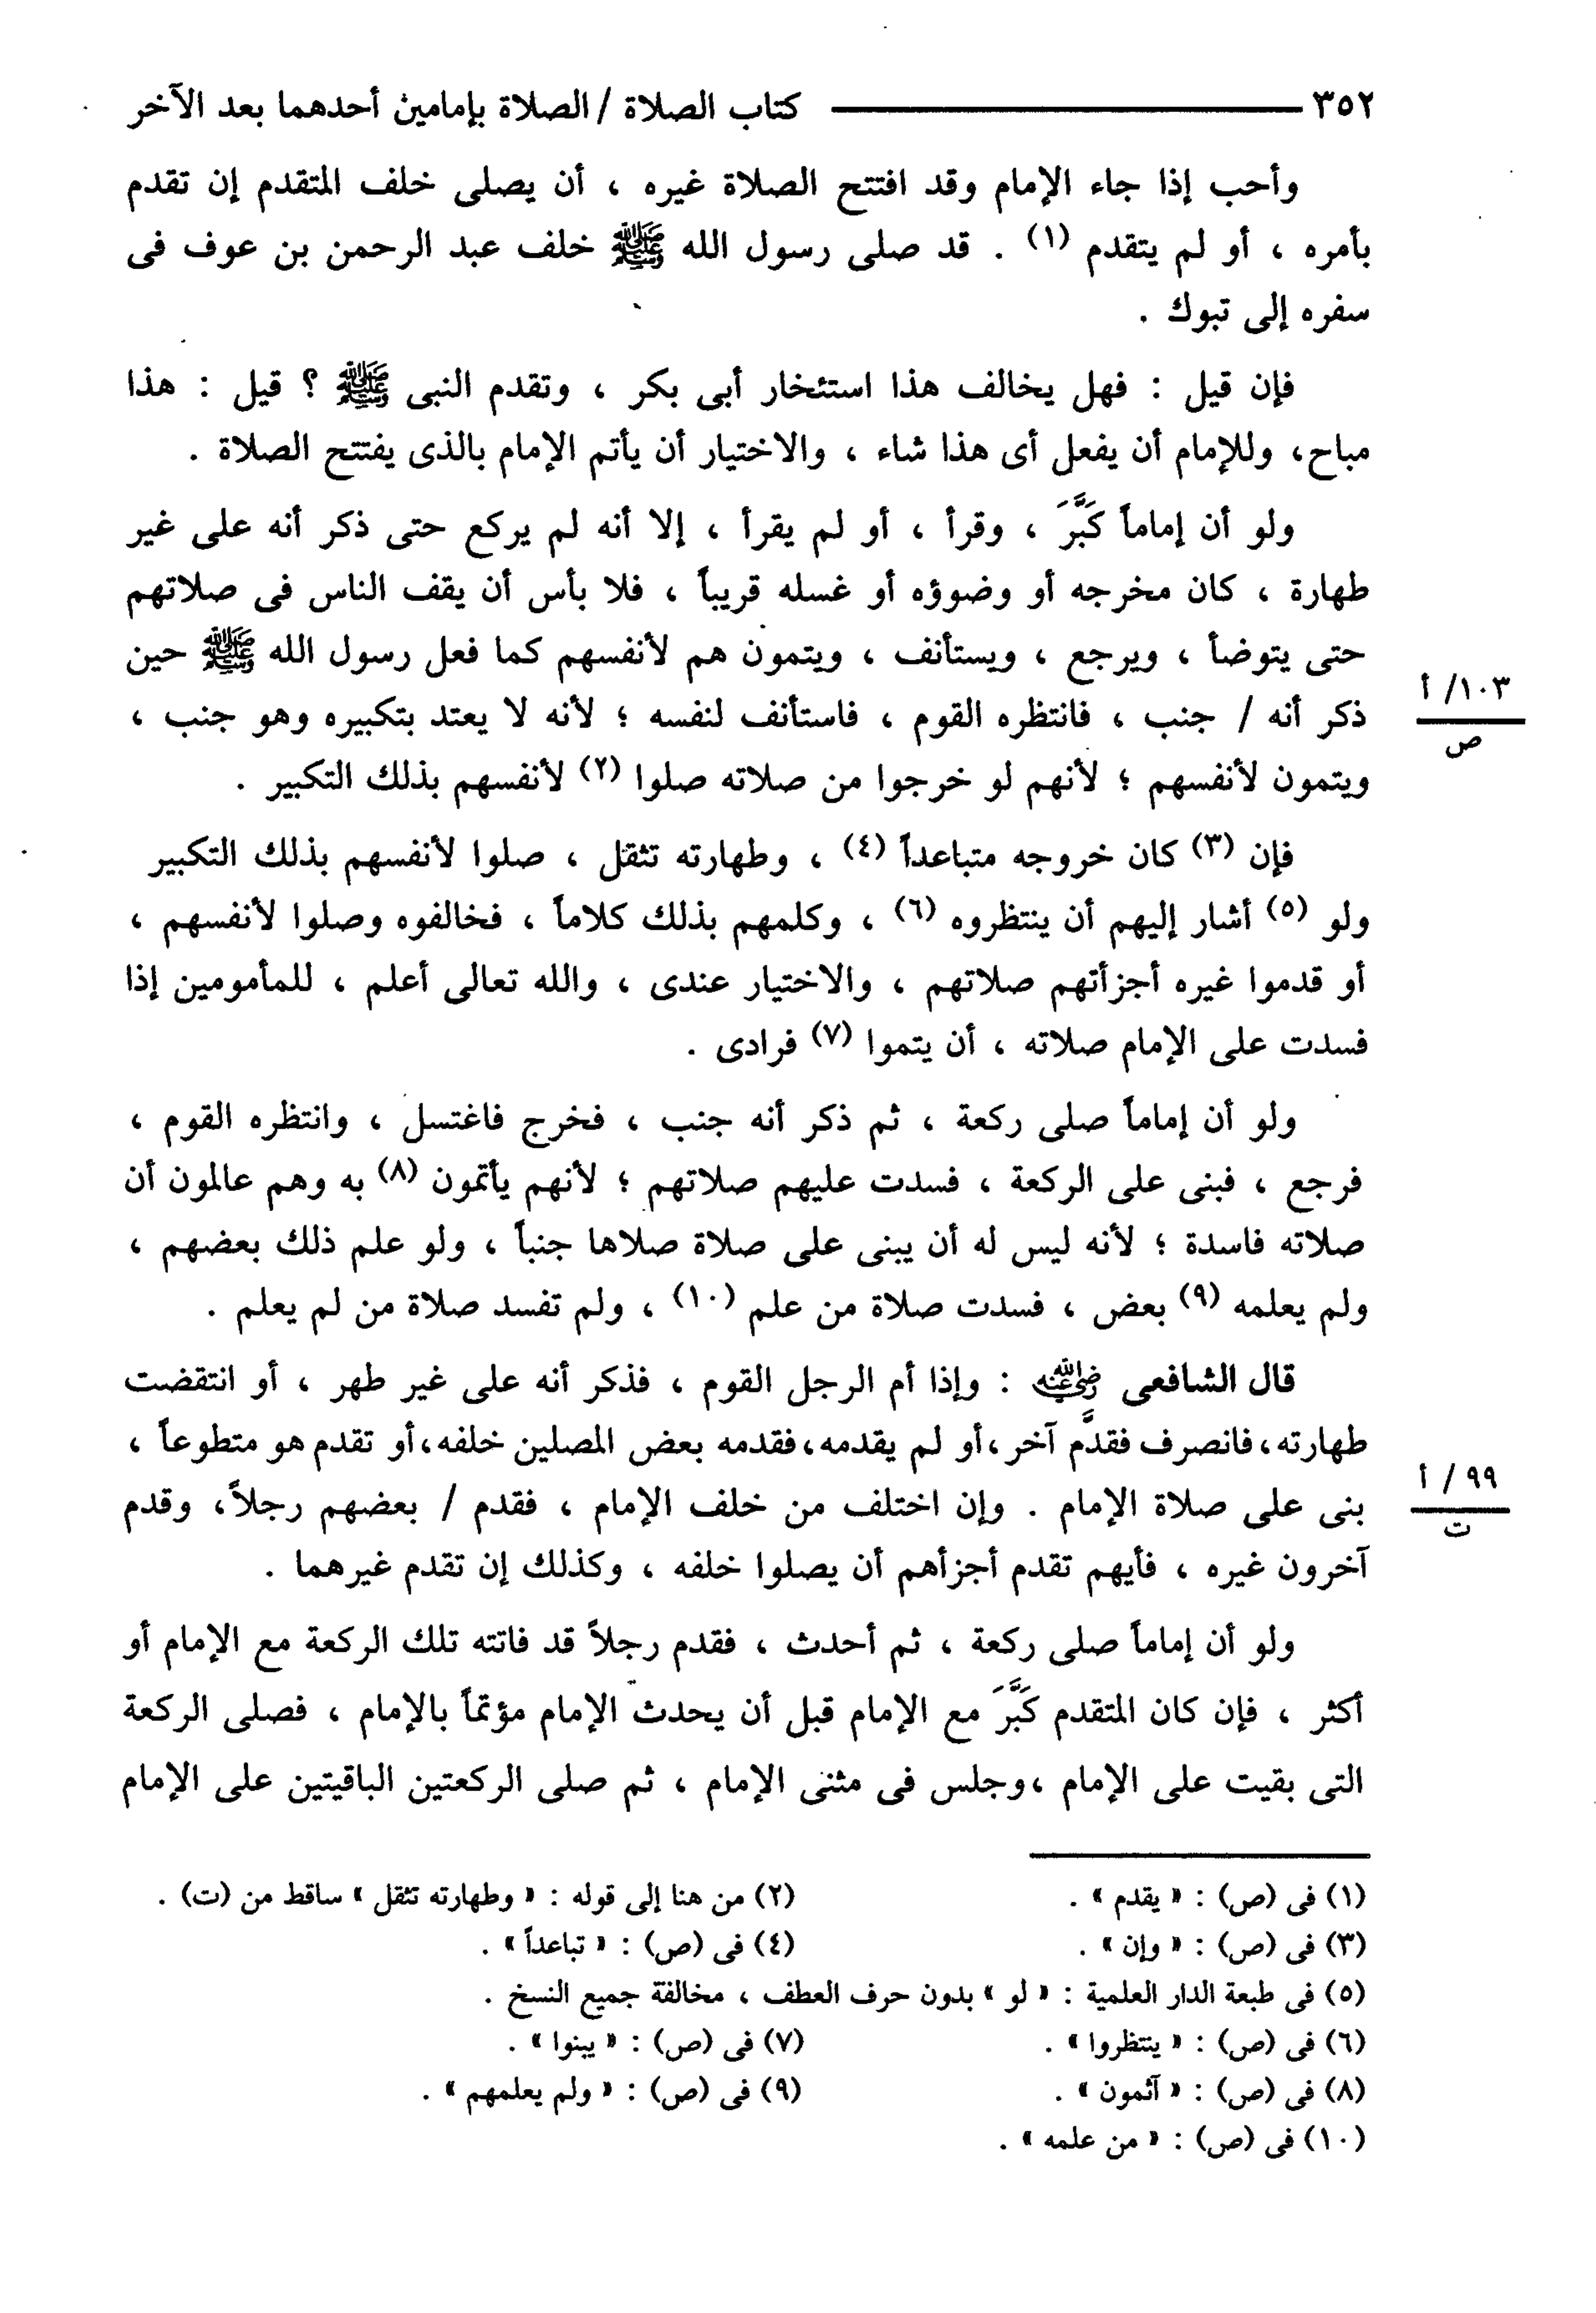 ٣٥٢ كتاب الصلاة / الصلاة بإمامين أحدهما بعد الآخر
وأحب إذا جاء الإمام وقد افتتح الصلاة غيره ، أن يصلى خلف المتقدم إن تقدم
بأمره ، أو لم يتقدم (١) . قد صلى رسول الله ﷺ خلف عبد الرحمن بن عوف فى
سفره إلى تبوك .
فإن قيل : فهل يخالف هذا استئخار أبى بكر ، وتقدم النبى ﷺ ؟ قيل : هذا
مباح، وللإمام أن يفعل أى هذا شاء ، والاختيار أن يأتم الإمام بالذى يفتتح الصلاة .
ولو أن إماماً كَبَّرَ ، وقرأ ، أو لم يقرأ ، إلا أنه لم يركع حتى ذكر أنه على غير
طهارة ، كان مخرجه أو وضوؤه أو غسله قريباً ، فلا بأس أن يقف الناس فى صلاتهم
حتى يتوضأ ، ويرجع ، ويستأنف ، ويتمون هم لأنفسهم كما فعل رسول الله ﷺ حين
١٠٣/ أ
ص
ذكر أنه / جنب ، فانتظره القوم ، فاستأنف لنفسه ؛ لأنه لا يعتد بتكبيره وهو جنب ،
ويتمون لأنفسهم ؛ لأنهم لو خرجوا من صلاته صلوا (٢) لأنفسهم بذلك التكبير .
فإن (٣) كان خروجه متباعداً (٤) ، وطهارته تثقل ، صلوا لأنفسهم بذلك التكبير
ولو (٥) أشار إليهم أن ينتظروه (٦) ، وكلمهم بذلك كلاماً ، فخالفوه وصلوا لأنفسهم ،
أو قدموا غيره أجزأتهم صلاتهم ، والاختيار عندى ، والله تعالى أعلم ، للمأمومين إذا
فسدت على الإمام صلاته ، أن يتموا (٧) فرادى .
ولو أن إماماً صلى ركعة ، ثم ذكر أنه جنب ، فخرج فاغتسل ، وانتظره القوم ،
فرجع ، فبنى على الركعة ، فسدت عليهم صلاتهم ؛ لأنهم يأتمون (٨) به وهم عالمون أن
صلاته فاسدة ؛ لأنه ليس له أن يبنى على صلاة صلاها جنباً ، ولو علم ذلك بعضهم ،
ولم يعلمه (٩) بعض ، فسدت صلاة من علم (١٠) ، ولم تفسد صلاة من لم يعلم .
قال الشافعى رضي الله عنه : وإذا أم الرجل القوم ، فذكر أنه على غير طهر ، أو انتقضت
طهارته،فانصرف فقدَّم آخر،أو لم يقدمه،فقدمه بعض المصلين خلفه،أو تقدم هو متطوعاً ،
٩٩ / أ
ت
بنى على صلاة الإمام . وإن اختلف من خلف الإمام ، فقدم / بعضهم رجلاً، وقدم
آخرون غيره ، فأيهم تقدم أجزأهم أن يصلوا خلفه ، وكذلك إن تقدم غيرهما .
ولو أن إماماً صلى ركعة ، ثم أحدث ، فقدم رجلاً قد فاتته تلك الركعة مع الإمام أو
أكثر ، فإن كان المتقدم كَبَّرَ مع الإمام قبل أن يحدث الإمام مؤتماً بالإمام ، فصلى الركعة
التى بقيت على الإمام ،وجلس فى مثنى الإمام ، ثم صلى الركعتين الباقيتين على الإمام
(١) فى (ص) : « يقدم » . (٢) من هنا إلى قوله : « وطهارته تثقل » ساقط من (ت) .
(٣) فى (ص) : « وإن » . (٤) فى (ص) : « تباعداً » .
(٥) فى طبعة الدار العلمية : « لو » بدون حرف العطف ، مخالفة جميع النسخ .
(٦) فى (ص) : « ينتظروا » . (٧) فى (ص) : « يبنوا » .
(٨) فى (ص) : « آثمون » . (٩) فى (ص) : « ولم يعلمهم » .
(١٠) فى (ص) : « من علمه » .